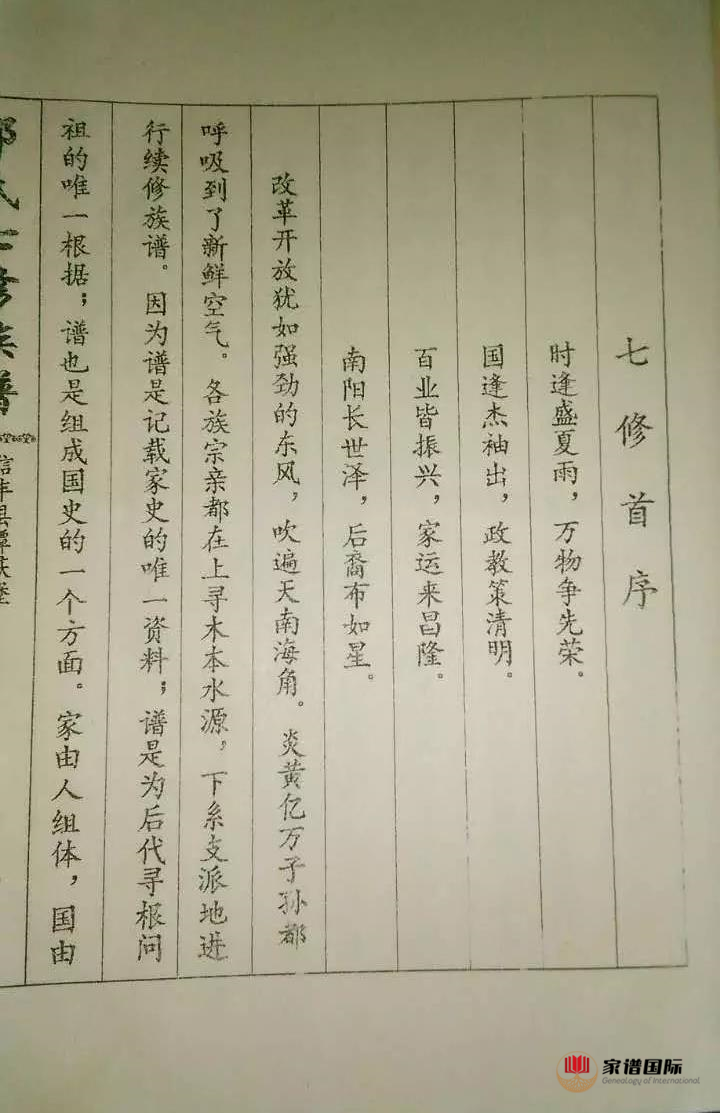 七修首序
时逢盛夏雨，万物争先荣。
国逢杰袖出，政教策清明。
百业皆振兴，家运来昌隆。
南阳长世泽，后裔布如星。
改革开放犹如强劲的东风，吹遍天南海角。炎黄亿万子孙都
呼吸到了新鲜空气。各族宗亲都在上寻木本水源，下系支派地进
行续修族谱。因为谱是记载家史的唯一资料；谱是为后代寻根问
祖的唯一根据；谱也是组成国史的一个方面。家由人组体，国由
氏七修族谱
信丰县
家谱国际
Genealogy of International